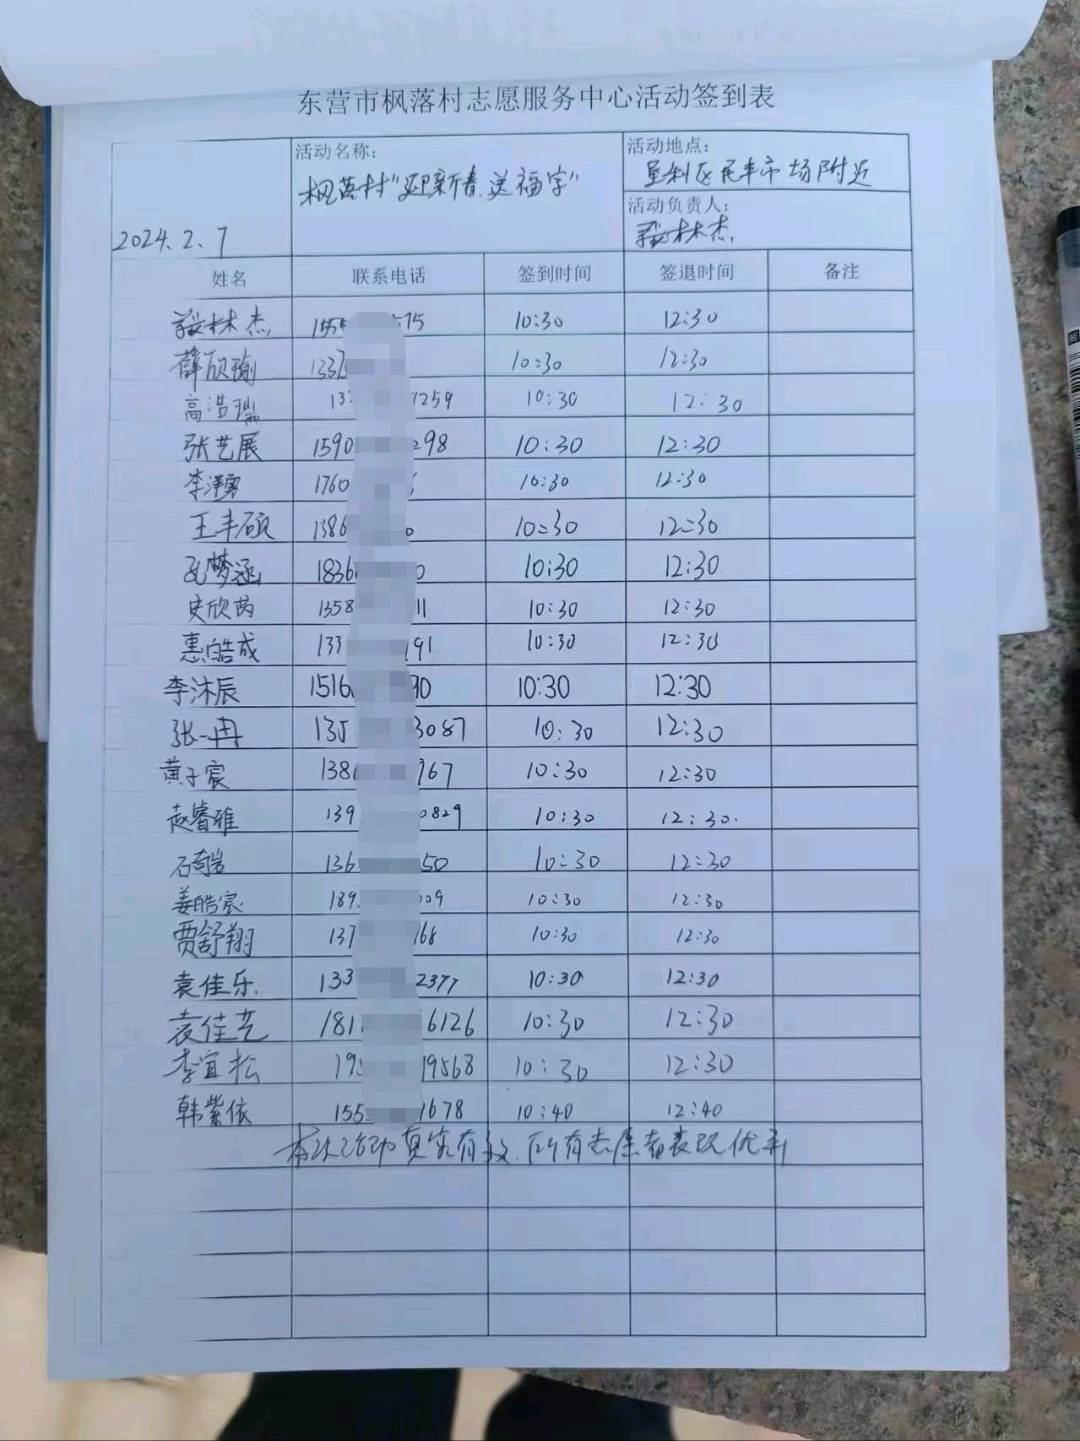 东营市枫落村志愿服务中心活动签到表
2024.2.7
活动名称：
枫落村"迎新春送福字"
活动地点：
垦利区民丰市场附近
活动负责人：
林杰
姓名 联系电话 签到时间 签退时间 备注
林杰 155 575 10:30 12:30
薛欣瑜 1337 10:30 12:30
高浩瑞 13 7259 10:30 12:30
张艺展 1590 298 10:30 12:30
李泽勇 1760 10:30 12:30
王丰硕 1386 0 10:30 12:30
孔梦涵 1836 0 10:30 12:30
史欣芮 1358 11 10:30 12:30
惠皓成 133 191 10:30 12:30
李沐辰 1516 90 10:30 12:30
张一冉 135 3087 10:30 12:30
黄子宸 138 967 10:30 12:30
赵睿雅 139 0829 10:30 12:30.
石 136 50 10:30 12:30
姜皓宸 189 009 10:30 12:30
贾舒翔 137 168 10:30 12:30
袁佳乐. 133 2377 10:30 12:30
袁佳艺 181 6126 10:30 12:30
李宜松 19 19568 10:30 12:30
韩紫依 155 1678 10:40 12:40
本次活动真实有效.所有志愿者表现优秀